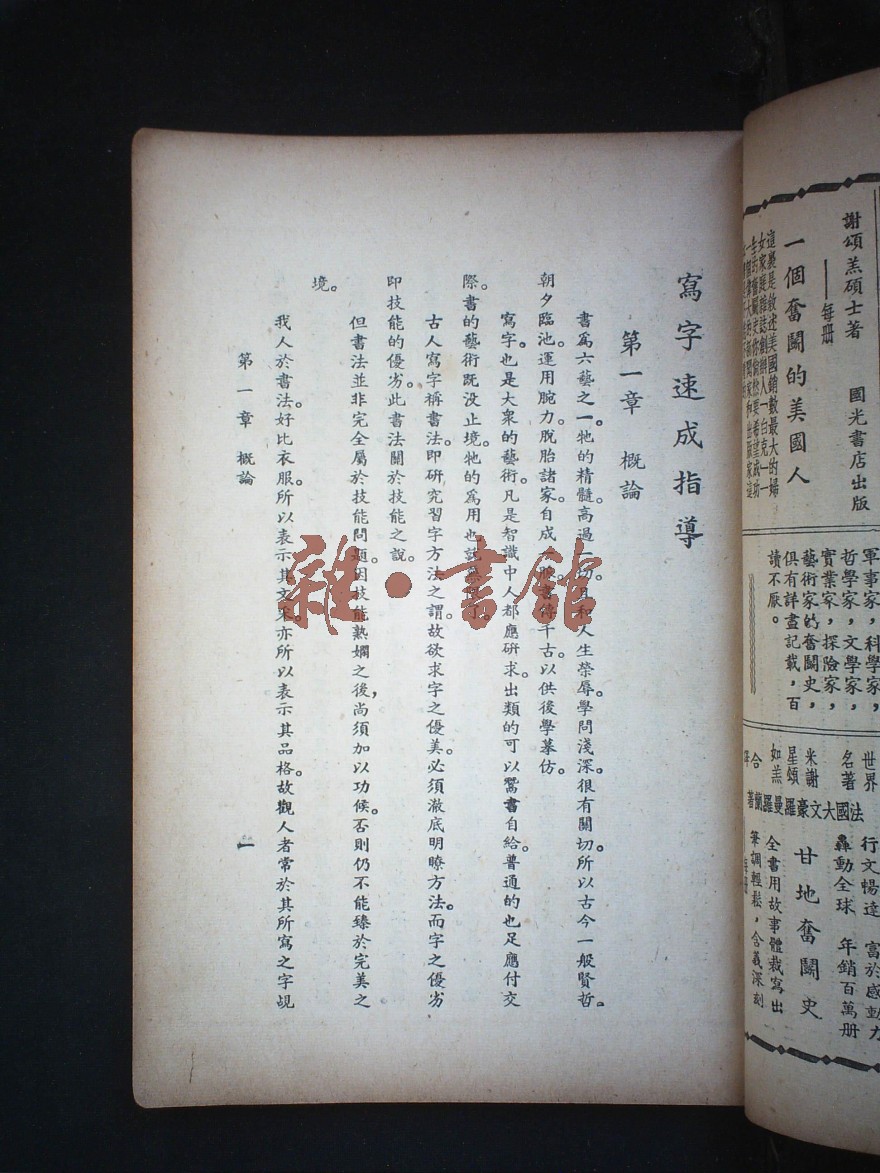 寫字速成指導
第一章 概論
書爲六藝之一。牠的精髓高過一切。且和人生榮辱。學問淺深。很有關切。所以古今一般賢哲。
朝夕臨池。運用腕力。脫胎諸家。自成一
千古。以供後學摹仿。
寫字。也是大衆的藝術。凡是智識中人都應研求。出類的可以鬻書自給。普通的也足應付交
際。書的藝術旣沒止境。牠的爲用也
古人寫字稱書法。即研究習字方法之謂。故欲求字之優美。必須澈底明瞭方法。而字之優劣
即技能的優劣。此書法關於技能之說。
但書法並非完全屬於技能問題。因技能熟嫻之後,尚須加以功候。否則仍不能臻於完美之
境。
我人於書法。好比衣服。所以表示其文采。亦所以表示其品格。故觀人者常於其所寫之字覘
第一章 概論
一
雜·書館
謝頌羔碩士著
一個奮鬭的美國人
——每冊
國光書店出版
這裏是敘述美國銷數最大的婦
女家庭雜誌創辦人「白克」一
軍事家,科學家,
哲學家,文學家,
實業家,探險家,
藝術家的奮鬭史,
俱有詳盡記載,百
讀不厭。
世界名著
米星如 謝頌羔 合譯
法國大文豪羅曼羅蘭著
甘地奮鬭史
行文暢達 富於感動力
轟動全球 年銷百萬册
全書用故事體裁寫出
筆調輕鬆,含義深刻